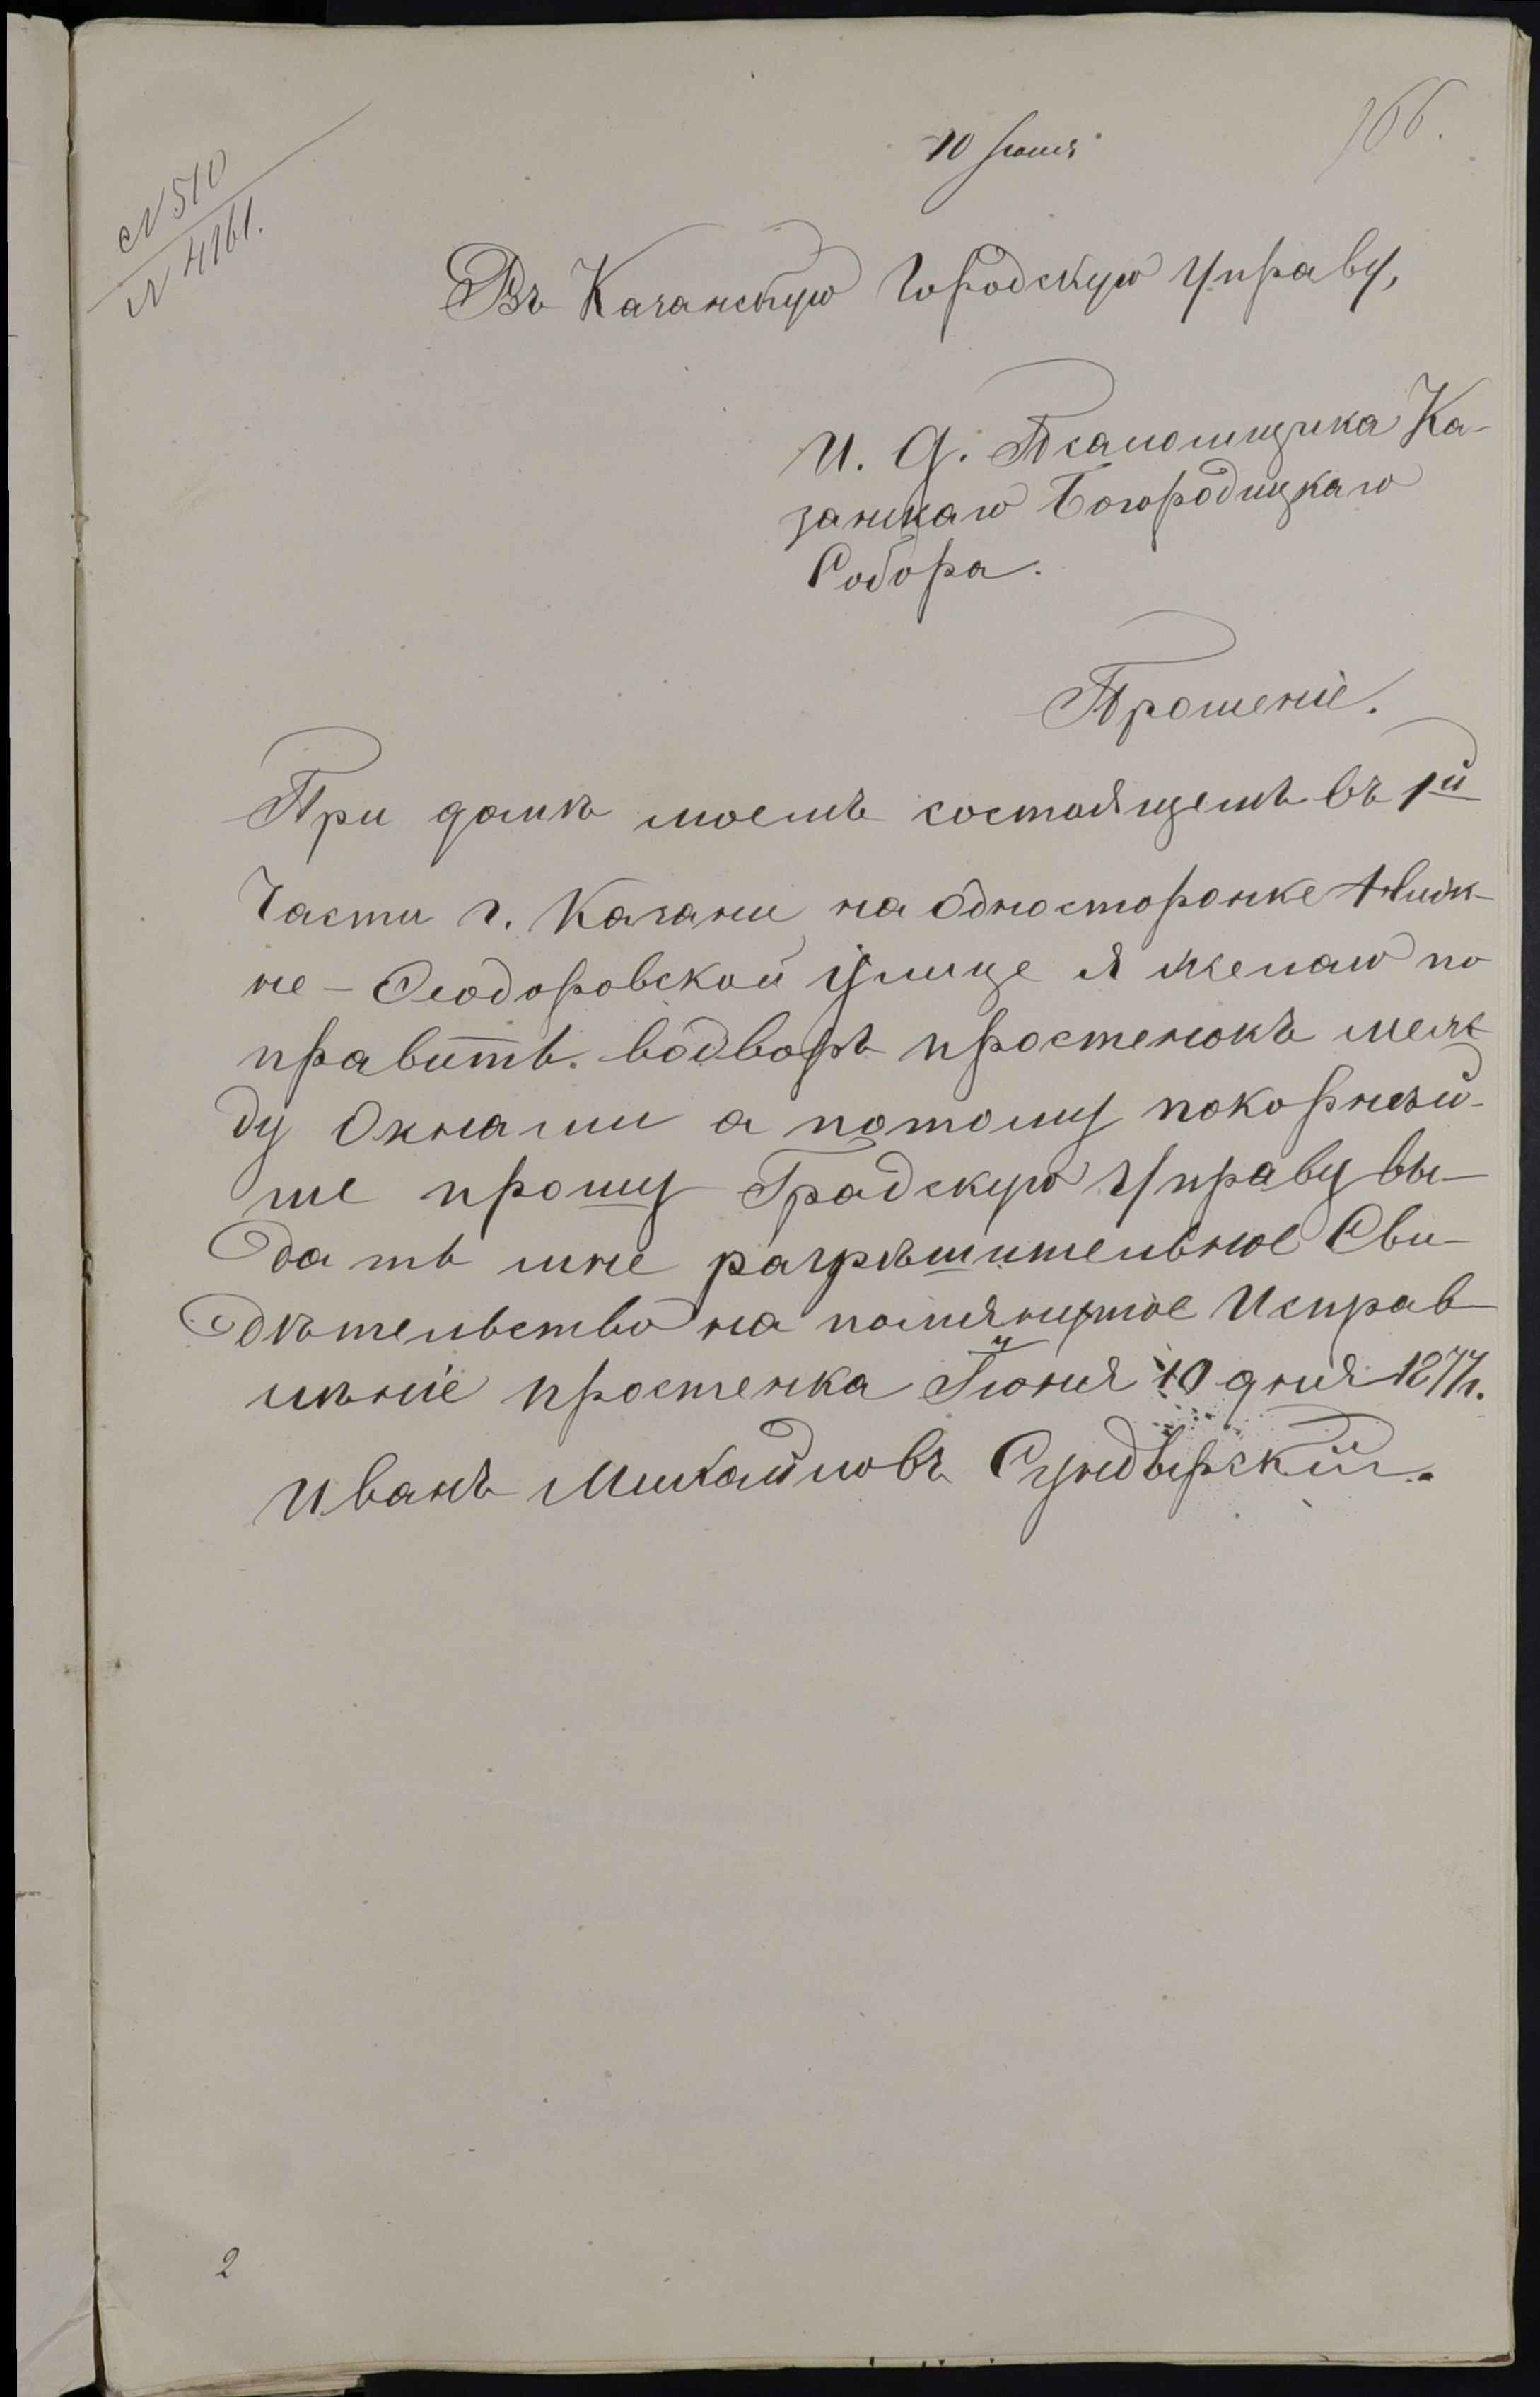 166.
10 Іюня
N 510
N 4161.
Въ Казанскую Городскую Управу,
И. Д. Псаломщика Ка-
занскаго Богородицкаго
Собора.
Прошеніе.
При домѣ моемъ состоящемъ въ 1й
Части г. Казани на Односторонке Ниж-
не-Ѳеодоровской Улице я желаю по
править водворѣ простенокъ меж
ду Окнами а потому покорнѣй-
ше прошу Градскую Управу вы-
дать мне разрѣшительное Сви-
дѣтельство на помянутое Исправ
лѣніе простенка Іюня 10 дня 1877г.
Иванъ Михайловъ Сундырскій.
2